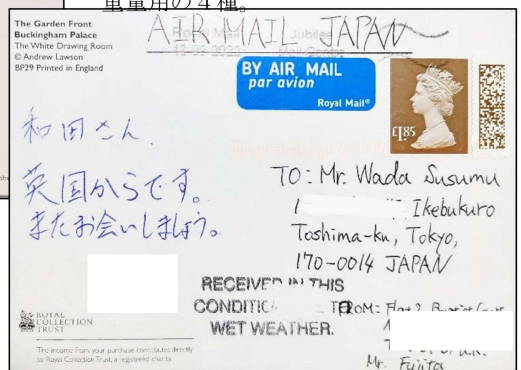 重量用の４種。
The Garden Front
Buckingham Palace
The White Drawing Room
© Andrew Lawson
BP29 Printed in England
AIR MAIL JAPAN
Royal Mail Jubilee
Mail Centre
BY AIR MAIL
par avion
Royal Mail®
£1.85
和田さん、
英国からです。
またお会いしましょう。
TO: Mr. Wada Susumu
Ikebukuro
Toshima-ku, Tokyo,
170-0014 JAPAN
RECEIVED IN THIS
WET WEATHER.
Mr. Fujita
ROYAL
COLLECTION
TRUST
The income from your purchase contributes directly
to Royal Collection Trust, a registered charity